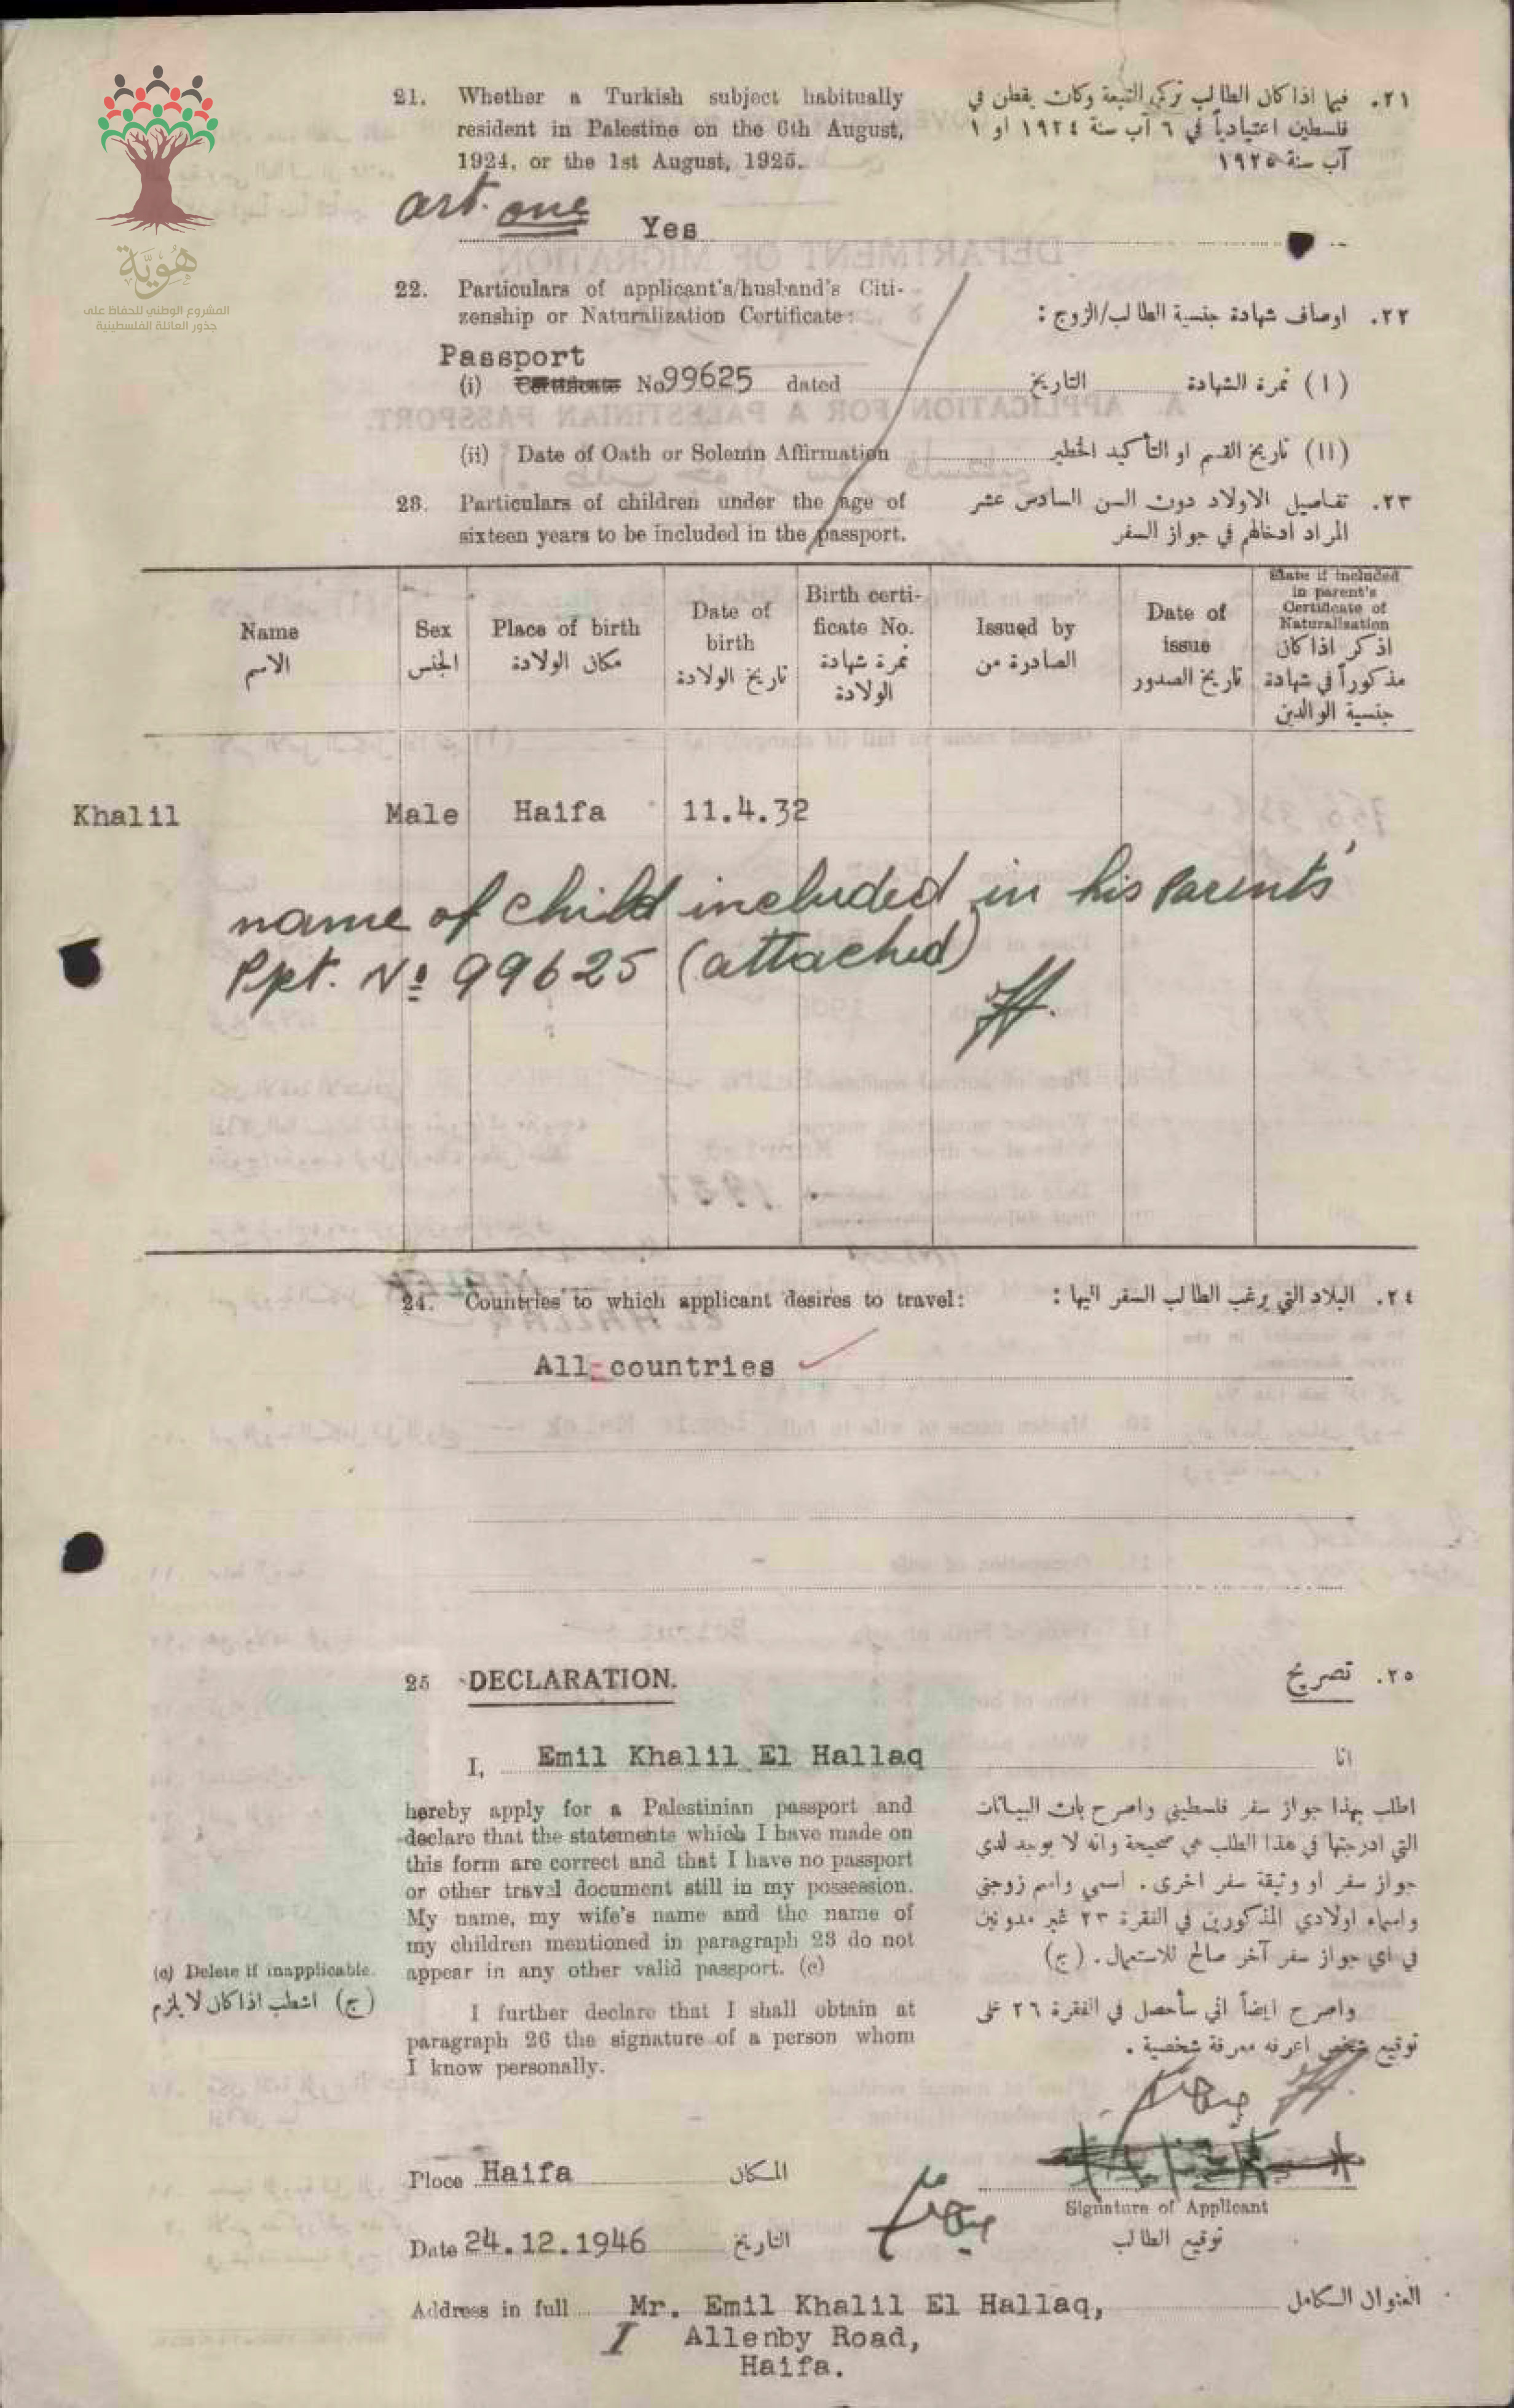 هُوِيَّة
المشروع الوطني للحفاظ على
جذور العائلة الفلسطينية
21. Whether a Turkish subject habitually
resident in Palestine on the 6th August,
1924, or the 1st August, 1925.
٢١. فيما اذا كان الطالب تركي التبعة وكان يقطن في
فلسطين اعتيادياً في ٦ آب سنة ١٩٢٤ او ١
آب سنة ١٩٢٥
art. one Yes
22. Particulars of applicant's/husband's Citi-
zenship or Naturalization Certificate:
٢٢. اوصاف شهادة جنسية الطالب/الزوج :
Passport
(i) Certificate No 99625 dated
التاريخ (١) نمرة الشهادة
(ii) Date of Oath or Solemn Affirmation
(١١) تاريخ القسم او التأكيد الخطير
23. Particulars of children under the age of
sixteen years to be included in the passport.
٢٣. تفاصيل الاولاد دون السن السادس عشر
المراد ادخالهم في جواز السفر
Name
الاسم
Sex
الجنس
Place of birth
مكان الولادة
Date of
birth
تاريخ الولادة
Birth certi-
ficate No.
نمرة شهادة
الولادة
Issued by
الصادرة من
Date of
issue
تاريخ الصدور
State if included
in parent's
Certificate of
Naturalisation
اذكر اذا كان
مذكوراً في شهادة
جنسية الوالدين
Khalil Male Haifa 11.4.32
name of child included in his Parents'
Ppt. No 99625 (attached)
24. Countries to which applicant desires to travel:
٢٤. البلاد التي يرغب الطالب السفر اليها :
All countries
25 DECLARATION.
٢٥. تصريح
I, Emil Khalil El Hallaq انا
hereby apply for a Palestinian passport and
declare that the statements which I have made on
this form are correct and that I have no passport
or other travel document still in my possession.
My name, my wife's name and the name of
my children mentioned in paragraph 23 do not
appear in any other valid passport. (c)
اطلب بهذا جواز سفر فلسطيني واصرح بان البيانات
التي ادرجتها في هذا الطلب هي صحيحة وانه لا يوجد لدي
جواز سفر او وثيقة سفر اخرى. اسمي واسم زوجتي
واسماء اولادي المذكورين في الفقرة ٢٣ غير مدونين
في اي جواز سفر آخر صالح للاستعمال. (ج)
(c) Delete if inapplicable.
(ج) اشطب اذا كان لا يلزم
I further declare that I shall obtain at
paragraph 26 the signature of a person whom
I know personally.
واصرح ايضاً اني سأحصل في الفقرة ٢٦ على
توقيع شخص اعرفه معرفة شخصية.
Place Haifa المكان
Signature of Applicant
توقيع الطالب
Date 24.12.1946 التاريخ
Address in full Mr. Emil Khalil El Hallaq, العنوان الكامل
I Allenby Road,
Haifa.